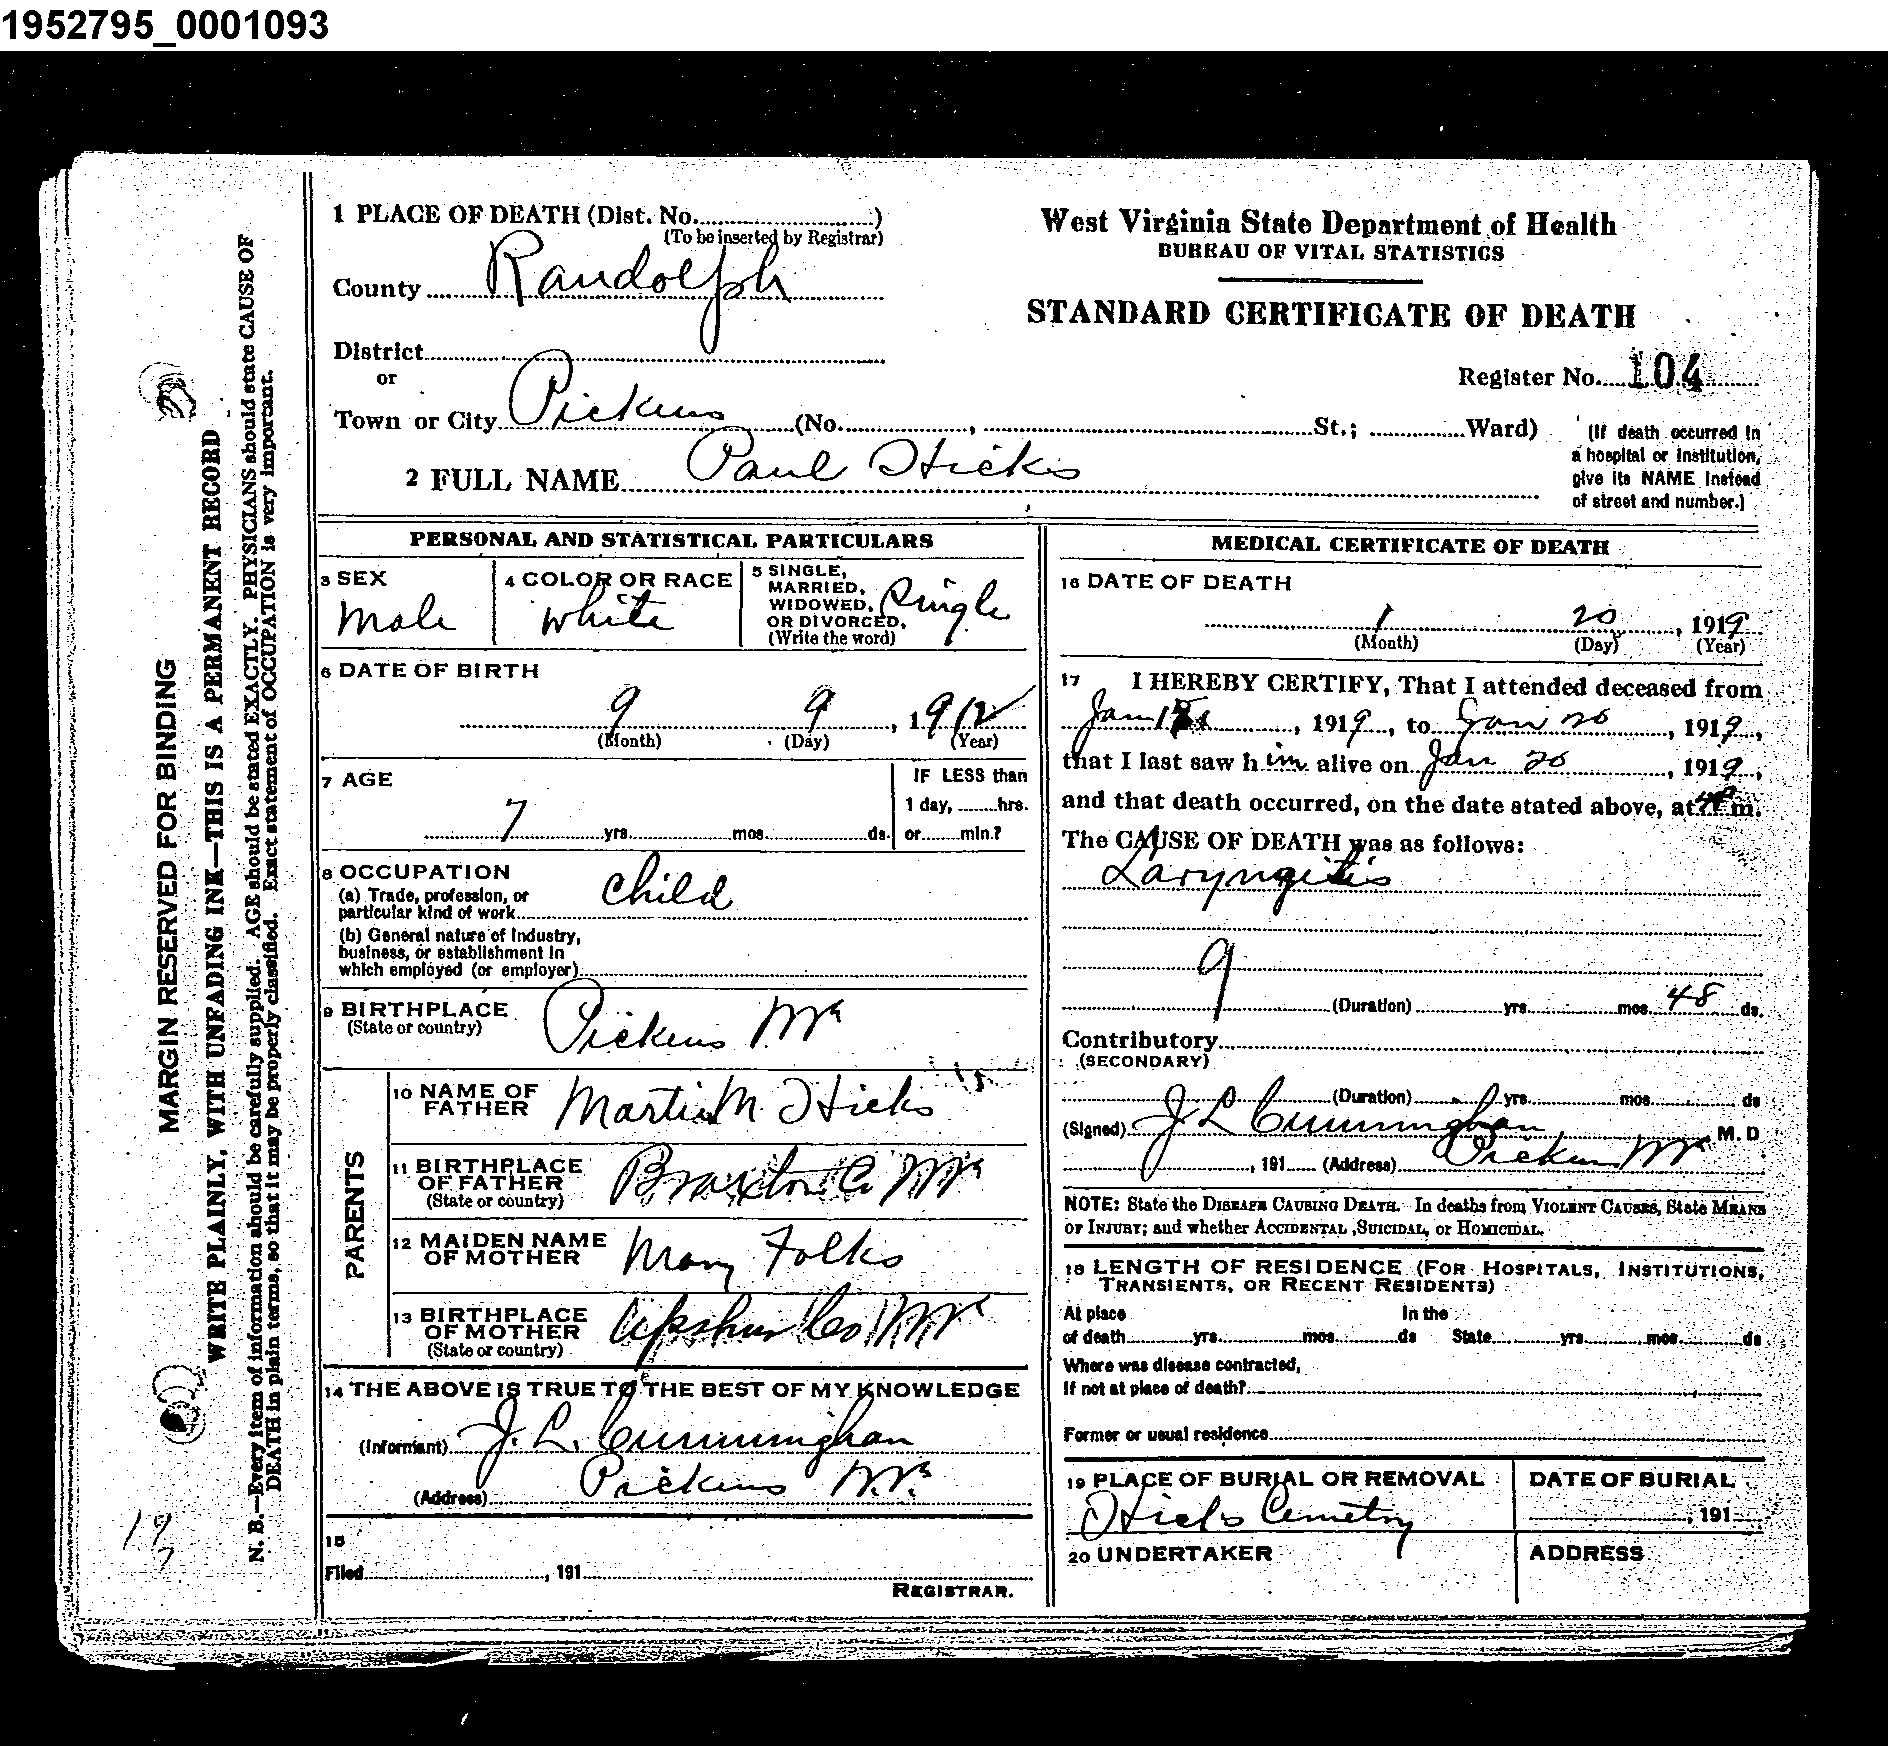 1952795_0001093
1 PLACE OF DEATH (Dist. No.)
(To be inserted by Registrar)
County Randolph
District
or
Town or City Pickens (No. , St.; Ward)
2 FULL NAME Paul Hicks
West Virginia State Department of Health
BUREAU OF VITAL STATISTICS
STANDARD CERTIFICATE OF DEATH
Register No. 104
(If death occurred in
a hospital or institution,
give its NAME instead
of street and number.]
MARGIN RESERVED FOR BINDING
WRITE PLAINLY, WITH UNFADING INK—THIS IS A PERMANENT RECORD
N. B.—Every item of information should be carefully supplied. AGE should be stated EXACTLY. PHYSICIANS should state CAUSE OF
DEATH in plain terms, so that it may be properly classified. Exact statement of OCCUPATION is very important.
PERSONAL AND STATISTICAL PARTICULARS
3 SEX
Male
4 COLOR OR RACE
White
5 SINGLE,
MARRIED,
WIDOWED,
OR DIVORCED,
(Write the word)
Single
6 DATE OF BIRTH
9 9, 1912
(Month) (Day) (Year)
7 AGE
7 yrs. mos. ds.
IF LESS than
1 day, hrs.
or min.?
8 OCCUPATION
(a) Trade, profession, or
particular kind of work
Child
(b) General nature of Industry,
business, or establishment in
which employed (or employer)
9 BIRTHPLACE
(State or country)
Pickens W.Va
PARENTS
10 NAME OF
FATHER
Martin M. Hicks
11 BIRTHPLACE
OF FATHER
(State or country)
Braxton Co W Va
12 MAIDEN NAME
OF MOTHER
Mary Folks
13 BIRTHPLACE
OF MOTHER
(State or country)
Upshur Co W Va
14 THE ABOVE IS TRUE TO THE BEST OF MY KNOWLEDGE
(Informant) J. L. Cunningham
(Address) Pickens W.Va.
15
Filed , 191
REGISTRAR.
MEDICAL CERTIFICATE OF DEATH
16 DATE OF DEATH
1 20, 1919
(Month) (Day) (Year)
17 I HEREBY CERTIFY, That I attended deceased from
Jan , 1919, to Jan 20, 1919,
that I last saw him alive on Jan 20, 1919,
and that death occurred, on the date stated above, at m.
The CAUSE OF DEATH was as follows:
Laryngitis
9
(Duration) yrs. mos. 48 ds.
Contributory
(SECONDARY)
(Duration) yrs. mos. ds
(Signed) J L Cunningham M.D
, 191 (Address) Pickens W Va
NOTE: State the DISEASE CAUSING DEATH. In deaths from VIOLENT CAUSES, State MEANS
or INJURY; and whether ACCIDENTAL ,SUICIDAL, or HOMICIDAL.
18 LENGTH OF RESIDENCE (FOR HOSPITALS, INSTITUTIONS,
TRANSIENTS, OR RECENT RESIDENTS)
At place In the
of death yrs. mos. ds State yrs. mos. ds
Where was disease contracted,
If not at place of death?
Former or usual residence
19 PLACE OF BURIAL OR REMOVAL
Hicks Cemetry
DATE OF BURIAL
, 191
20 UNDERTAKER
ADDRESS